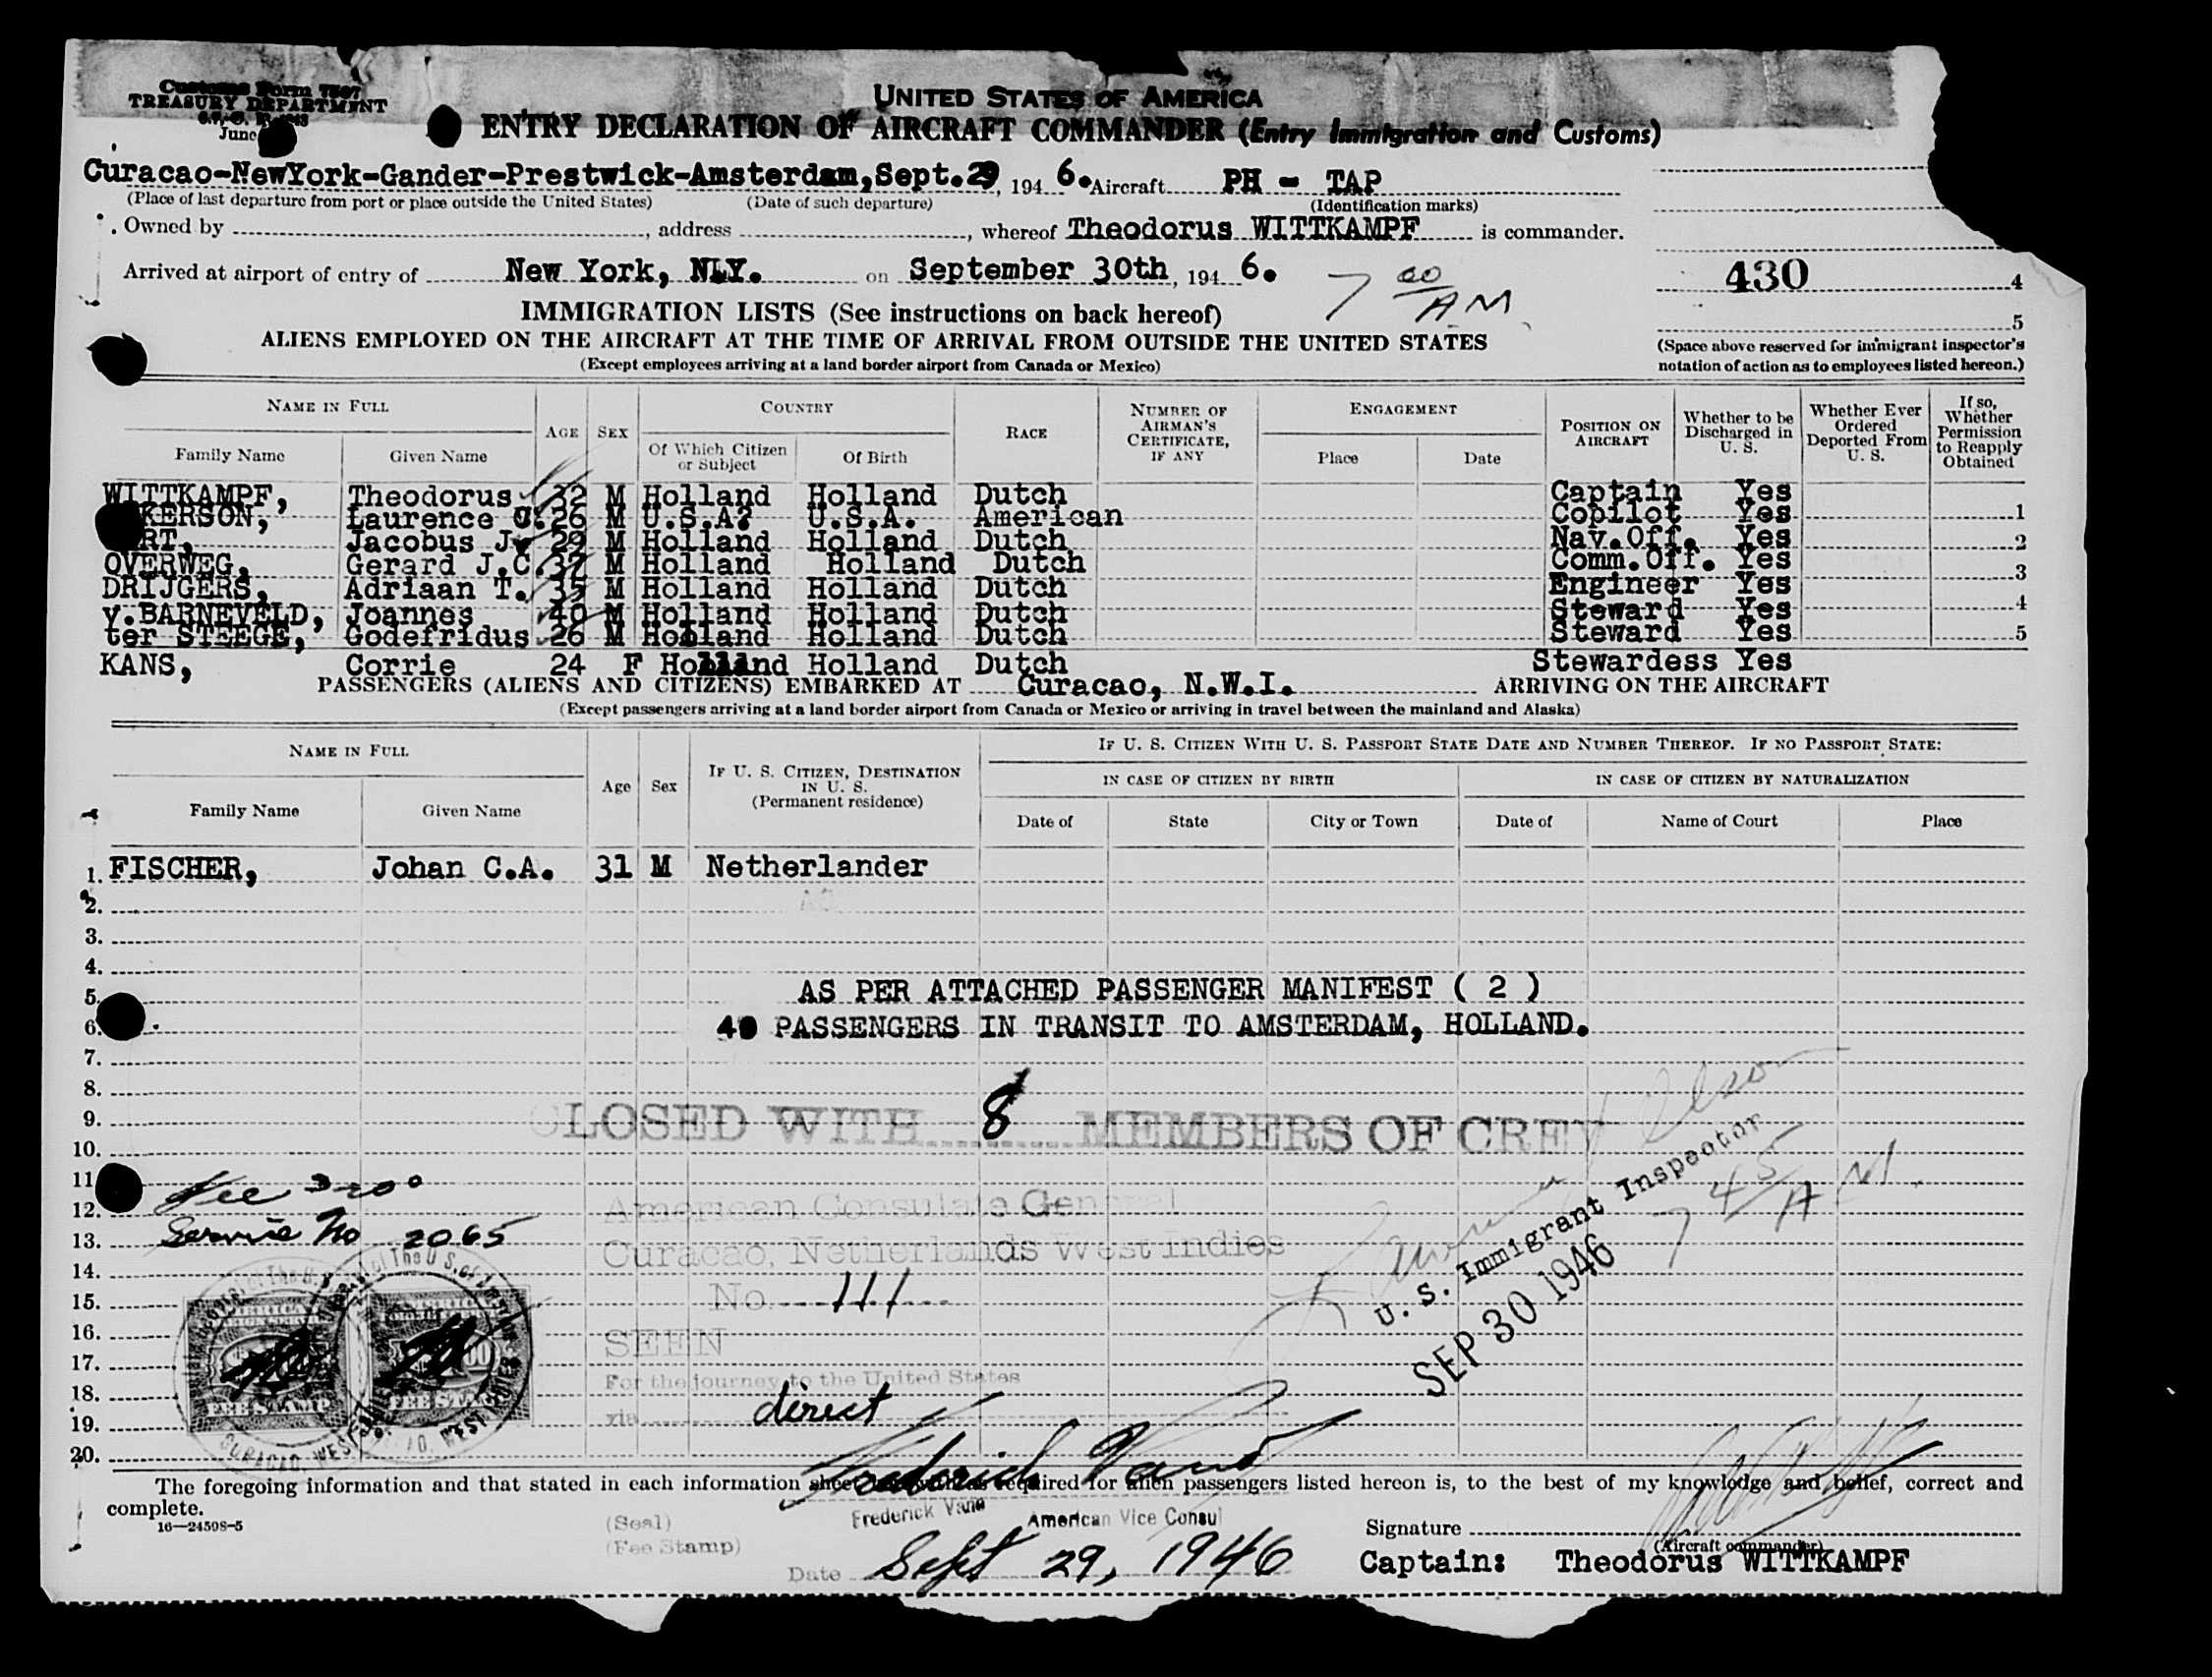 Customs Form 7507
TREASURY DEPARTMENT
June
UNITED STATES OF AMERICA
ENTRY DECLARATION OF AIRCRAFT COMMANDER (Entry Immigration and Customs)
Curacao-NewYork-Gander-Prestwick-Amsterdam,Sept.29, 194 6. Aircraft PH - TAP
(Place of last departure from port or place outside the United States) (Date of such departure) (Identification marks)
Owned by , address , whereof Theodorus WITTKAMPF is commander.
Arrived at airport of entry of New York, N.Y. on September 30th, 194 6.
7 00 AM
430
4
5
IMMIGRATION LISTS (See instructions on back hereof)
ALIENS EMPLOYED ON THE AIRCRAFT AT THE TIME OF ARRIVAL FROM OUTSIDE THE UNITED STATES
(Except employees arriving at a land border airport from Canada or Mexico)
(Space above reserved for immigrant inspector's
notation of action as to employees listed hereon.)
NAME IN FULL
Family Name Given Name
AGE SEX
COUNTRY
Of Which Citizen or Subject
Of Birth
RACE
NUMBER OF AIRMAN'S CERTIFICATE, IF ANY
ENGAGEMENT
Place Date
POSITION ON AIRCRAFT
Whether to be Discharged in U. S.
Whether Ever Ordered Deported From U. S.
If so, Whether Permission to Reapply Obtained
WITTKAMPF, Theodorus 32 M Holland Holland Dutch Captain Yes
KERSON, Laurence 26 M U.S.A. U.S.A. American Copilot Yes 1
RT, Jacobus J. 29 M Holland Holland Dutch Nav.Off. Yes 2
OVERWEG, Gerard J.C. 37 M Holland Holland Dutch Comm.Off. Yes 3
DRIJGERS, Adriaan T. 35 M Holland Holland Dutch Engineer Yes
v.BARNEVELD, Joannes 40 M Holland Holland Dutch Steward Yes 4
ter STEEGE, Godefridus 26 M Holland Holland Dutch Steward Yes 5
KANS, Corrie 24 F Holland Holland Dutch Stewardess Yes
PASSENGERS (ALIENS AND CITIZENS) EMBARKED AT Curacao, N.W.I. ARRIVING ON THE AIRCRAFT
(Except passengers arriving at a land border airport from Canada or Mexico or arriving in travel between the mainland and Alaska)
NAME IN FULL
Family Name Given Name
Age Sex
IF U. S. CITIZEN, DESTINATION IN U. S. (Permanent residence)
IF U. S. CITIZEN WITH U. S. PASSPORT STATE DATE AND NUMBER THEREOF. IF NO PASSPORT STATE:
IN CASE OF CITIZEN BY BIRTH IN CASE OF CITIZEN BY NATURALIZATION
Date of State City or Town Date of Name of Court Place
1. FISCHER, Johan C.A. 31 M Netherlander
2.
3.
4.
5. AS PER ATTACHED PASSENGER MANIFEST ( 2 )
6. 40 PASSENGERS IN TRANSIT TO AMSTERDAM, HOLLAND.
7.
8.
9. CLOSED WITH 8 MEMBERS OF CREW
10.
11
12. American Consulate General
13. Service No 2065
Curacao, Netherlands West Indies
14.
15. No. 111
16. SEEN
17. For the journey to the United States
18. via direct
19.
20.
FEE STAMP FEE STAMP
U. S. Immigrant Inspector
7 45 A M.
SEP 30 1946
The foregoing information and that stated in each information required for alien passengers listed hereon is, to the best of my knowledge and belief, correct and
complete.
16—24598-5
(Seal)
(Fee Stamp)
Frederick Vane American Vice Consul
Date Sept 29, 1946
Signature
(Aircraft commander)
Captain: Theodorus WITTKAMPF